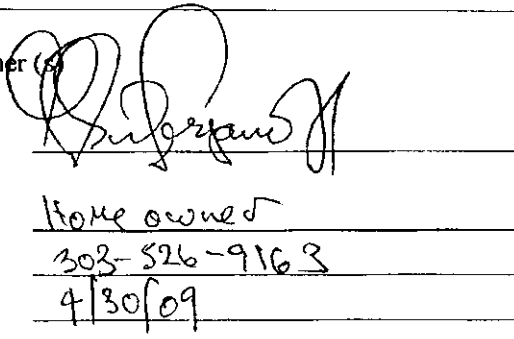 ner (s)
Home owner
303-526-9163
4/30/09